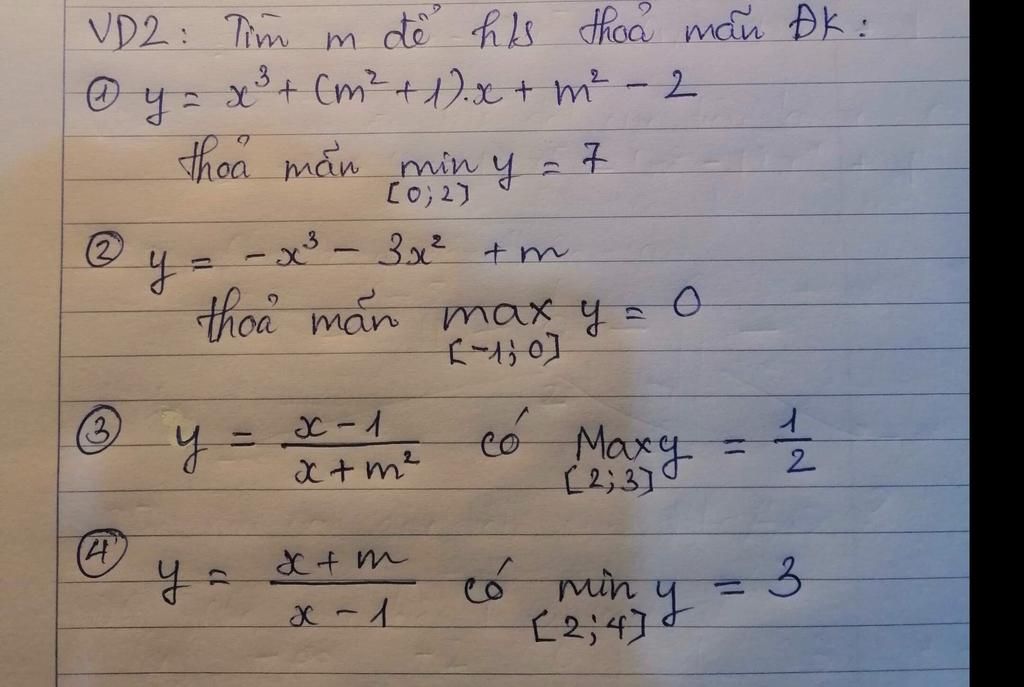 VD2: Tìm m để h/s thoả mãn ĐK:
① y = x³ + (m² + 1).x + m² - 2
thoả mãn min y = 7
[0;2]
② y = -x³ - 3x² + m
thoả mãn max y = 0
[-1;0]
③ y = (x-1)/(x+m²) có Max y = 1/2
[2;3]
④ y = (x+m)/(x-1) có min y = 3
[2;4]